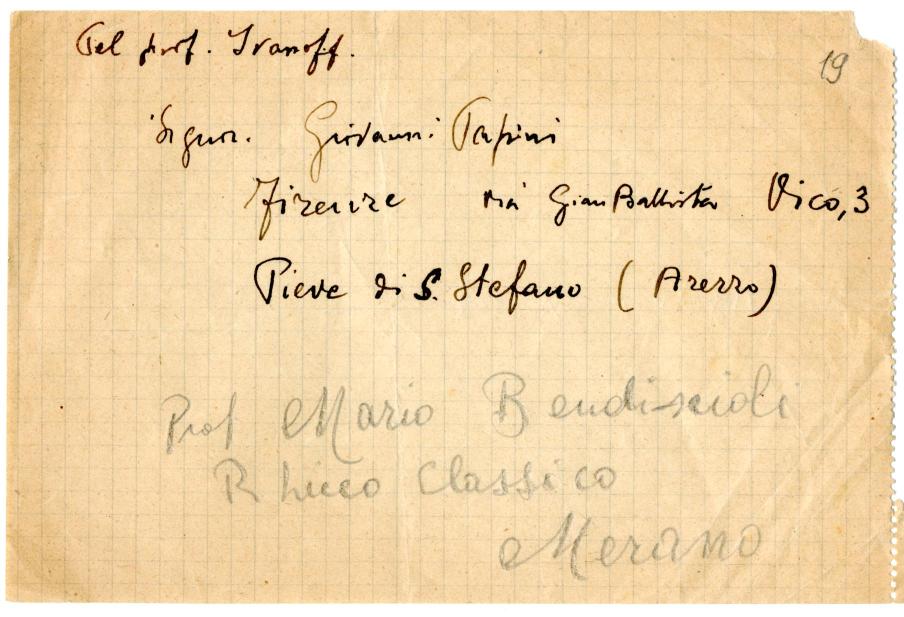 Pel prof. Ivanoff.
19
Signor. Giovanni Papini
Firenze via Gian Battista Vico, 3
Pieve di S. Stefano (Arezzo)
Prof Mario Bendiscioli
R Liceo Classico
Merano